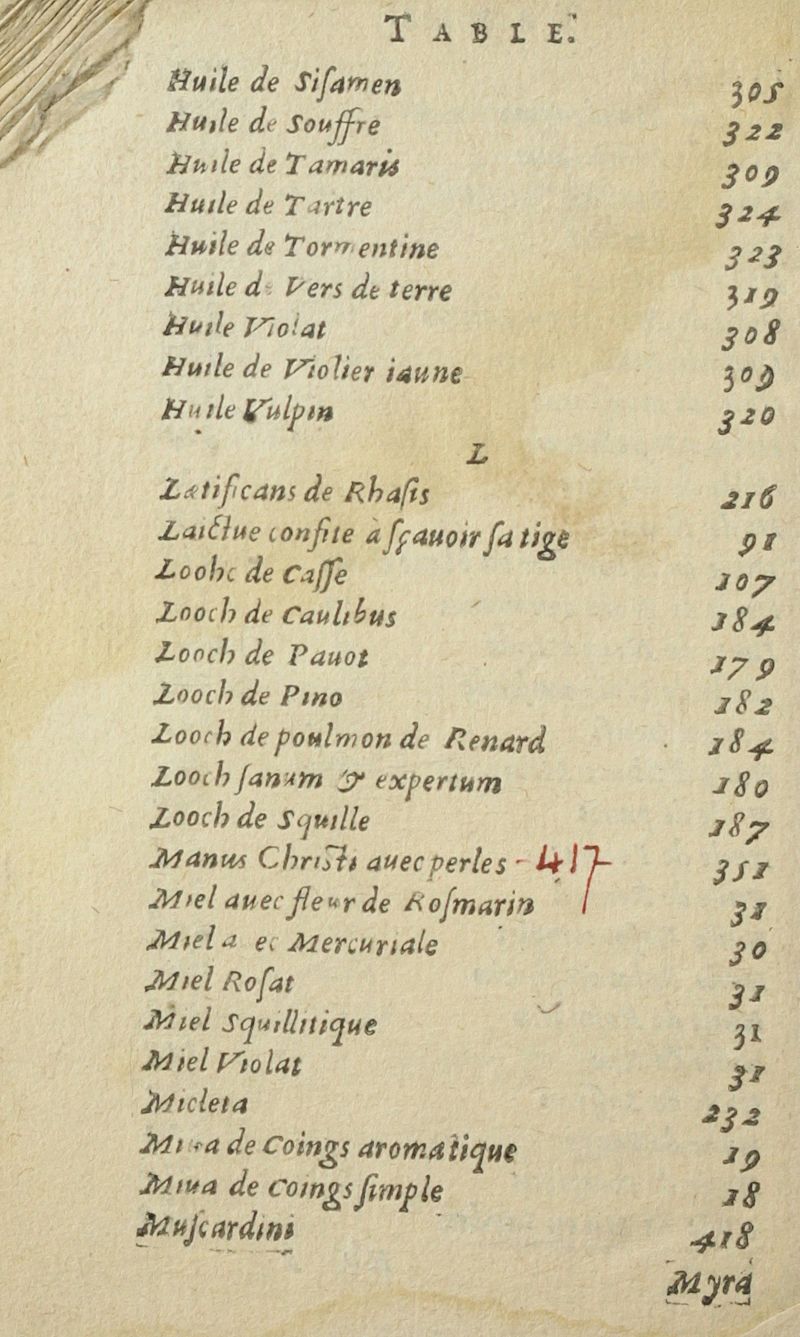 TABLE.
Huile de Siſamen 305
Huile de Souffre 322
Huile de Tamaris 309
Huile de Tartre 324
Huile de Tormentine 323
Huile de Vers de terre 319
Huile Violat 308
Huile de Violier iaune 309
Huile Vulpin 320
L
Lætificans de Rhaſis 216
Laictue confite à ſçauoir ſa tige 91
Loohc de Caſſe 107
Looch de Caulibus 184
Looch de Pauot 179
Looch de Pino 182
Looch de poulmon de Renard 184
Looch ſanum & expertum 180
Looch de Squille 187
Manus Chriſti auec perles - 417 351
Miel auec fleur de Roſmarin 31
Miel a ec Mercuriale 30
Miel Roſat 31
Miel Squillitique 31
Miel Violat 31
Micleta 232
Miua de Coings aromatique 19
Miua de Coings ſimple 18
Muſcardini 418
Myra